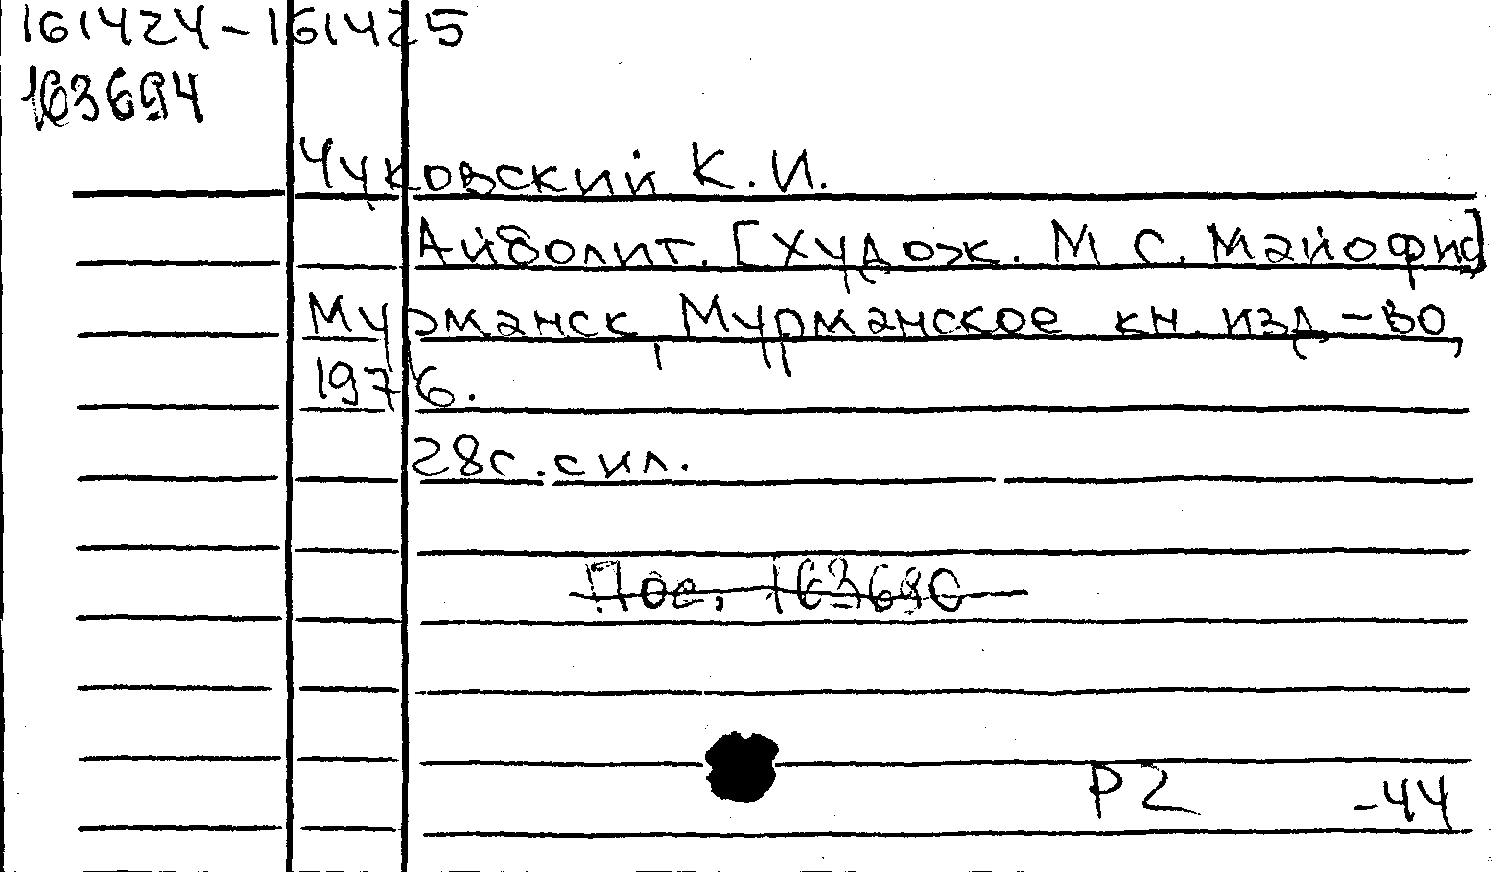 161424-161425
163694
Чуковский К. И.
Айболит. [Худож. М С. Майофис]
Мурманск, Мурманское кн. изд-во,
1976.
28с. с ил.
Пос. 163680
Р2 -44